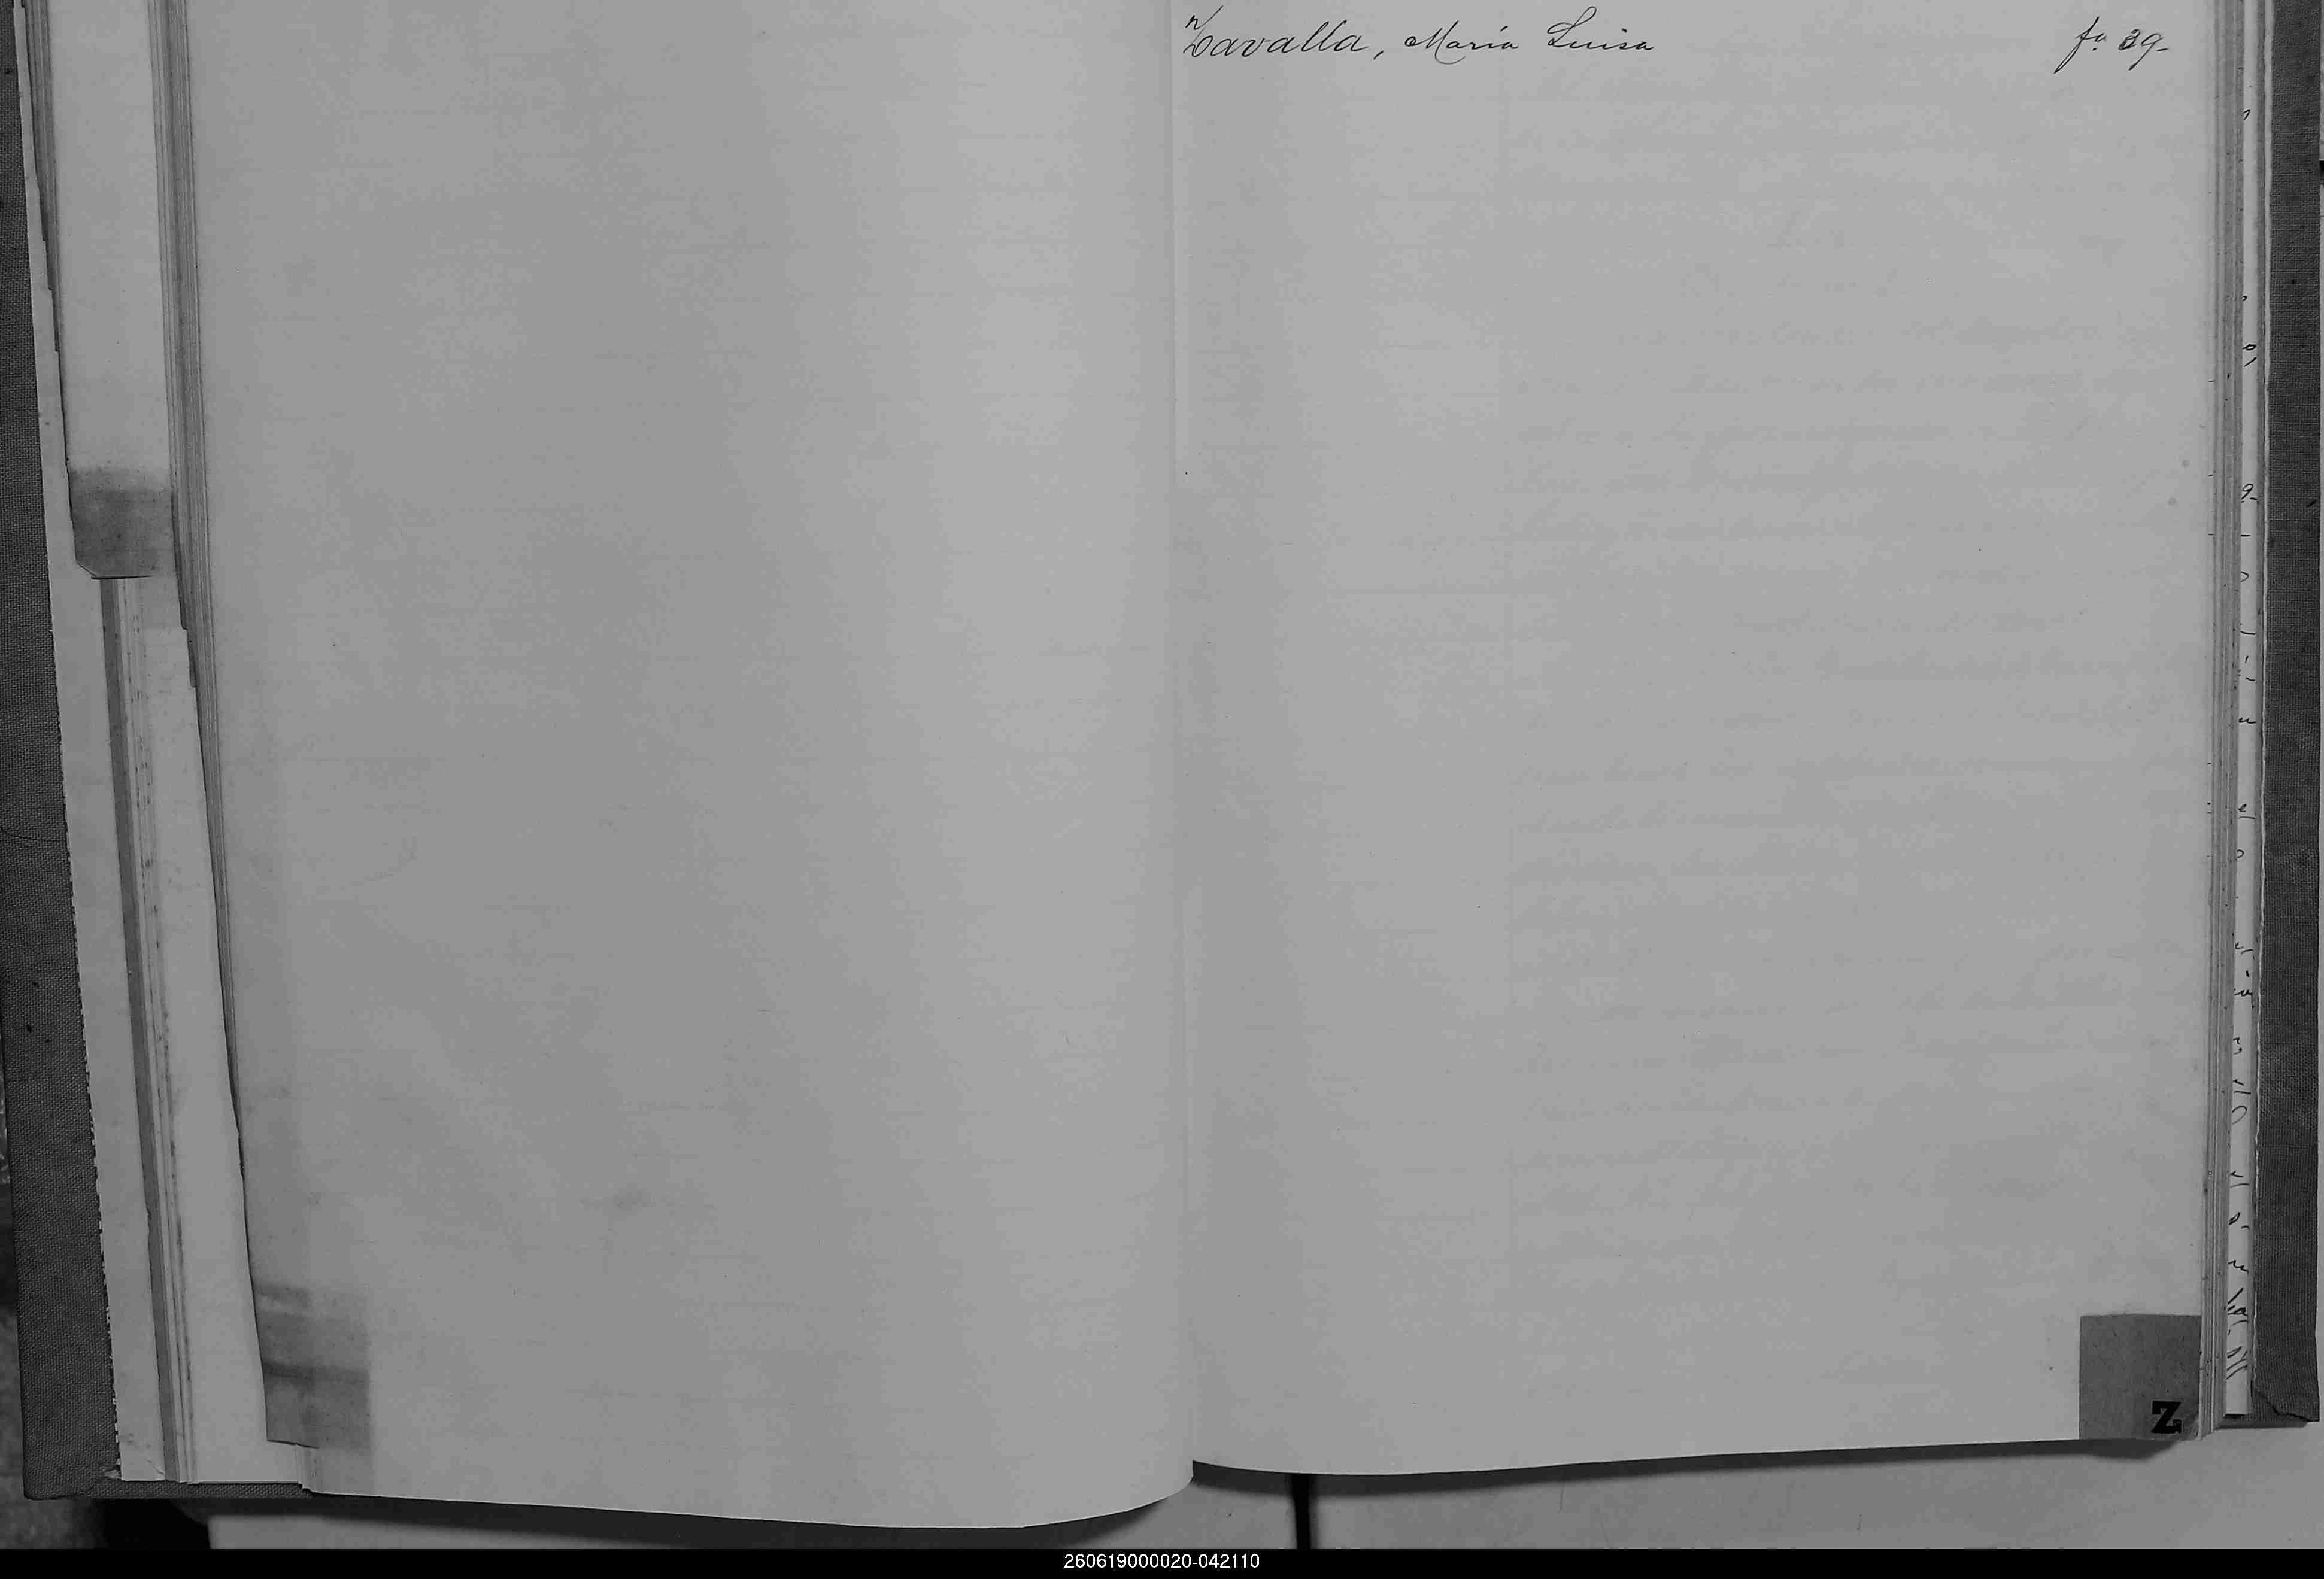 Zavalla, María Luisa fa 39-
Z
260619000020-042110